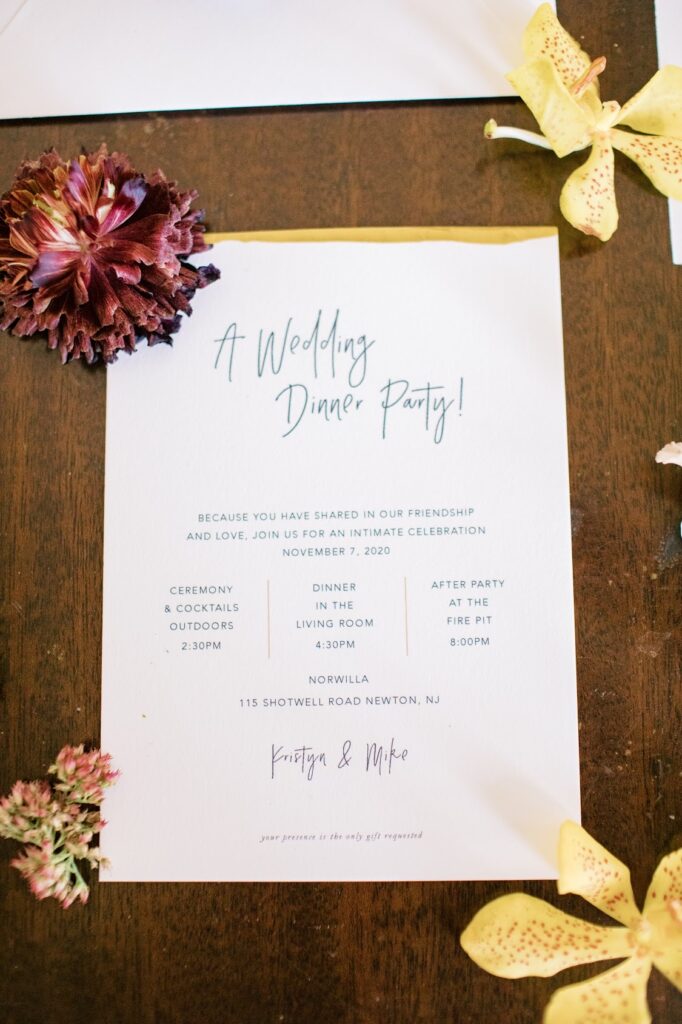 A Wedding
Dinner Party!
BECAUSE YOU HAVE SHARED IN OUR FRIENDSHIP
AND LOVE, JOIN US FOR AN INTIMATE CELEBRATION
NOVEMBER 7, 2020
CEREMONY
& COCKTAILS
OUTDOORS
2:30PM
DINNER
IN THE
LIVING ROOM
4:30PM
AFTER PARTY
AT THE
FIRE PIT
8:00PM
NORWILLA
115 SHOTWELL ROAD NEWTON, NJ
Kristyn & Mike
your presence is the only gift requested